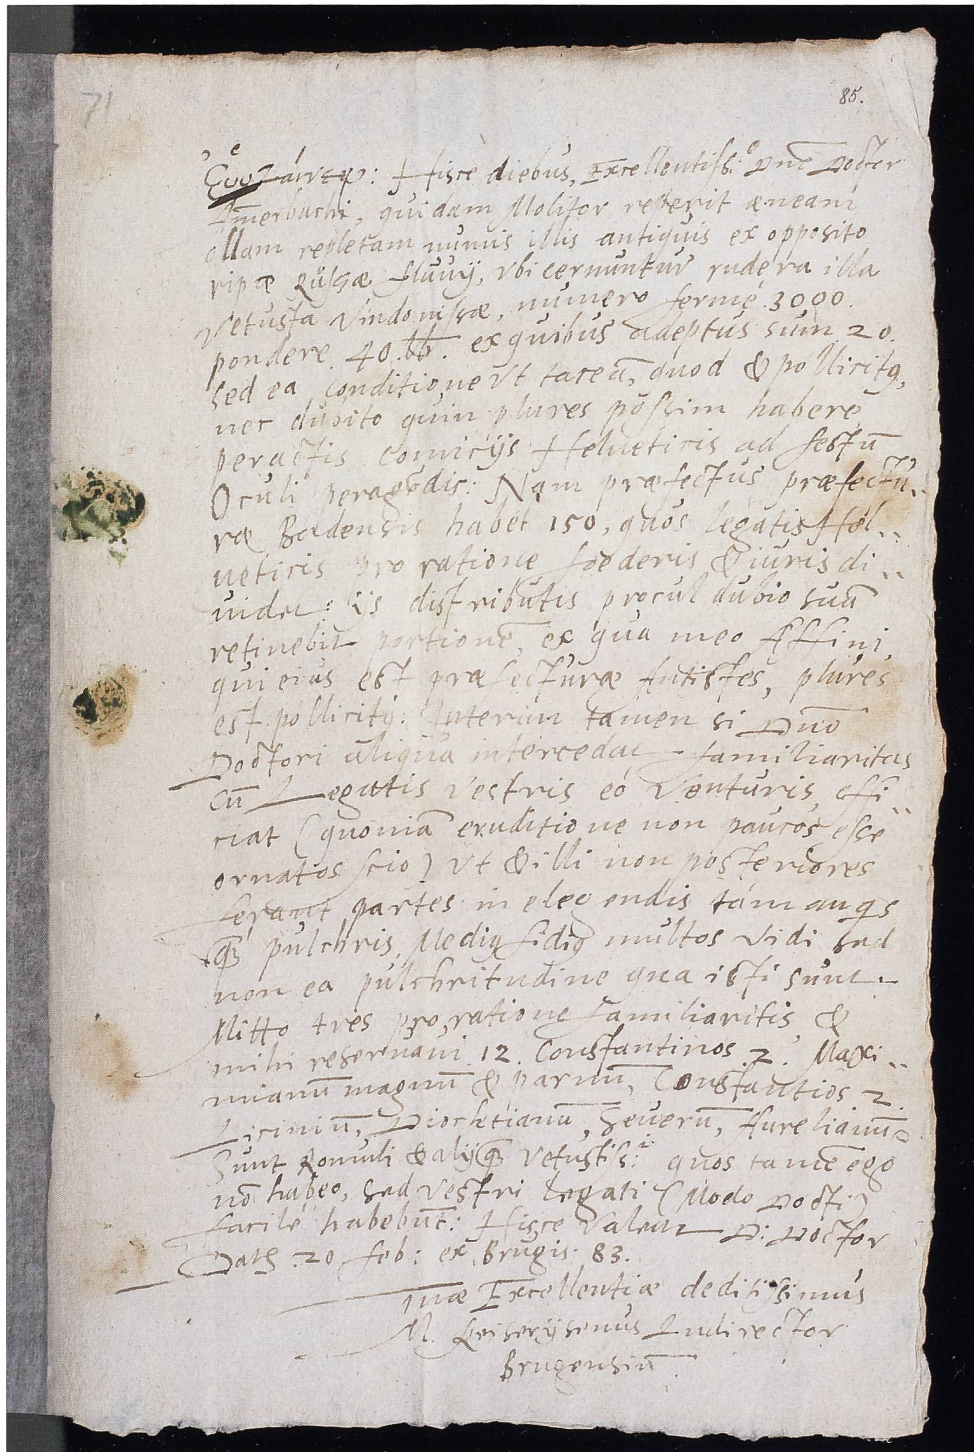 71
85.
Hisce diebus, Excellentiss:e Dne Doctor
Amerbachi, quidam Molitor reperit æneam
ollam repletam numis illis antiquis ex opposito
ripæ Rüssæ fluvij, vbi cernuntur rudera illa
vetusta Vindonissæ, numero fermè 3000.
pondere 40. lb. ex quibus adeptus sum 20.
sed ea conditione vt taceā, quod & pollicitꝰ,
nec dubito quin plures possim habere
peractis comicijs Helueticis ad festū
Oculi peragēdis: Nam præfectus præfectu..
ræ Badensis habet 150, quos legatis Hel..
ueticis pro ratione foederis & iuris di..
uidet: ijs distributis procul dubio suā
retinebit portionē, ex qua meo Affini,
qui eius est præfecturæ Antistes, plures
est pollicitꝰ. Interim tamen si Dno
Doctori aliqua intercedat familiaritas
cū Legatis vestris eò venturis, effi..
ciat (quoniā eruditione non paucos esse
ornatos scio) vt & illi non posteriores
ferant partes in elegendis tam
pulchris, Mediꝰ fidiꝰ multos vidi sed
non ea pulchritudine qua isti sunt.
Mitto tres pro ratione familiaritis &
mihi reseruaui 12. Constantinos 2. Maxi..
mianū magnū & paruū, Constantios 2.
Licinium, Diocletianū, Seuerū, Aurelianū
Sunt Romuli & alij vetustiss:i quos tamē ego
nō habeo, sed vestri legati (Modo Docti)
facilè habebūt: Hisce Valeat D: Doctor
Dat 20 feb: ex Brugis. 83.
Tuæ Excellentiæ deditissimus
M. Ludirector
Brugensiū.